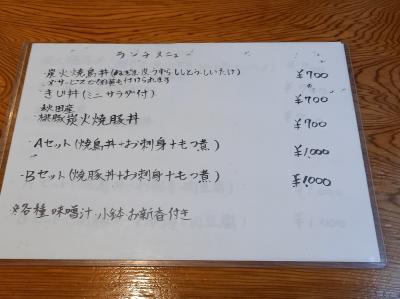 ランチメニュー
・炭火焼鳥丼(ねぎま皮うずらししとうしいたけ) ¥700
・きじ丼(ミニサラダ付) ¥700
秋田産
桃豚炭火焼豚丼 ¥700
・Aセット(焼鳥丼+お刺身+もつ煮) ¥1,000
・Bセット(焼豚丼+お刺身+もつ煮) ¥1,000
※各種味噌汁小鉢お新香付き